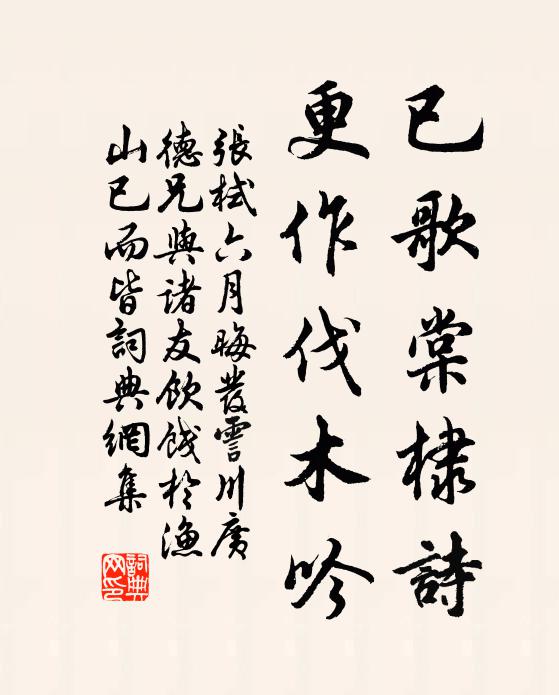 已歌棠棣詩
更作伐木吟
張栻六月晦發雲川廣
德兄與諸友飲餞於漁
山已而皆詞典網集
詞典網印